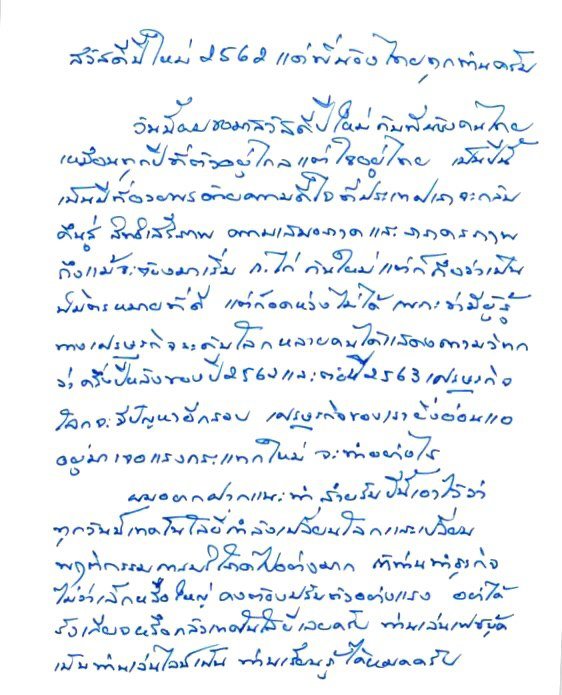 สวัสดีปีใหม่ 2562 แด่พี่น้องไทยทุกท่านครับ
วันนี้ผมขอมาสวัสดีปีใหม่กับพี่น้องคนไทย
เหมือนทุกปีที่ตัวอยู่ไกลแต่ใจอยู่ไทย เป็นปีนี้
เป็นปีที่อวยพรด้วยความดีใจที่ประเทศเราจะกลับ
คืนสู่ สิทธิเสรีภาพ ความเสมอภาคและภราดรภาพ
ถึงแม้จะต้องมาเริ่ม ก.ไก่ กันใหม่แต่ก็ถือว่าเป็น
นิมิตรหมายที่ดี แต่ก็อดห่วงไม่ได้ เพราะว่ามีผู้รู้
ทางเศรษฐกิจระดับโลกหลายคนได้แสดงความวิตก
ว่า ครึ่งปีหลังของปี 2562 และตลอดปี 2563 เศรษฐกิจ
โลกจะมีปัญหาอีกรอบ เศรษฐกิจของเรายิ่งอ่อนแอ
อยู่มาเจอแรงกระแทกใหม่ จะทำอย่างไร
ผมอยากฝากแนะนำสำหรับปีนี้เอาไว้ว่า
ทุกวันนี้เทคโนโลยีกำลังเปลี่ยนโลกและเปลี่ยน
พฤติกรรมการบริโภคไปอย่างมาก ถ้าท่านทำธุรกิจ
ไม่ว่าเล็กหรือใหญ่ คงต้องปรับตัวอย่างแรง อย่าได้
รังเกียจหรือกลัวเทคโนโลยีเลยครับ ท่านเล่นเฟซบุ๊ค
เป็นท่านเล่นไลน์เป็น ท่านเรียนรู้ได้หมดครับ